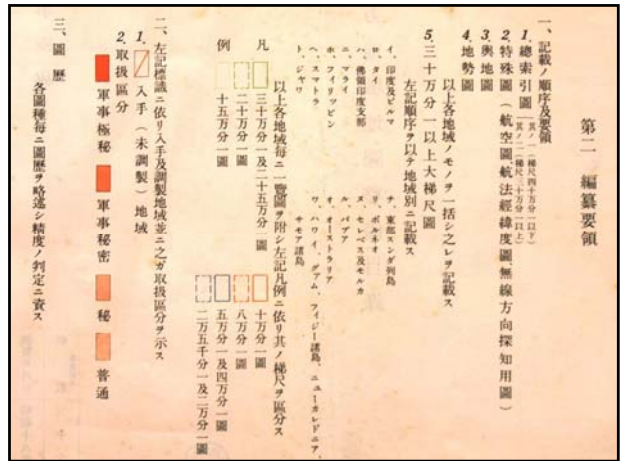 第二 編纂要領
一、記載ノ順序及要領
1. 總索引圖 其ノ一(梯尺四十万分一以下) 其ノ二(梯尺三十万分一以上)
2. 特殊圖(航空圖、航法經緯度圖、無線方向探知用圖)
3. 輿地圖
4. 地勢圖
以上各地域ノモノヲ一括シ之レヲ記載ス
5. 三十万分一以上大梯尺圖
左記順序ヲ以テ地域別ニ記載ス
イ、印度及ビルマ
ロ、タイ
ハ、佛領印度支那
ニ、マライ
ホ、フイリツピン
ヘ、スマトラ
ト、ジヤワ
チ、東部スンダ列島
リ、ボルネオ
ヌ、セレベス及モルカ
ル、パプア
オ、オーストラリア
ワ、ハワイ、グアム、フイジー諸島、ニユーカレドニア、
サモア諸島
以上各地域毎ニ一覽圖ヲ附シ左記凡例ニ依リ其ノ梯尺ヲ區分ス
凡例
三十万分一及二十五万分一圖
二十万分一圖
十五万分一圖
十万分一圖
八万分一圖
五万分一及四万分一圖
二万五千分一及二万分一圖
二、左記標識ニ依リ入手及調製地域並ニ之ガ取扱區分ヲ示ス
1. 入手(未調製)地域
2. 取扱區分
軍事極秘 軍事秘密 秘 普通
三、圖歷
各圖種毎ニ圖歷ヲ略述シ精度ノ判定ニ資ス